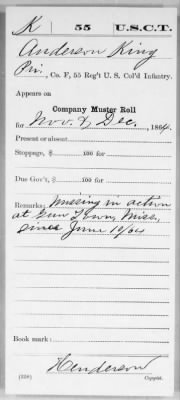 K 55 U.S.C.T.
Anderson King
Pvt., Co. F, 55 Reg't U. S. Col'd Infantry.
Appears on
Company Muster Roll
for Nov. & Dec., 1864.
Present or absent
Stoppage, $ 100 for
Due Gov't, $ 100 for
Remarks: Missing in action
at Gun Town, Miss,
since June 10/64
Book mark:
Henderson
(358) Copyist.